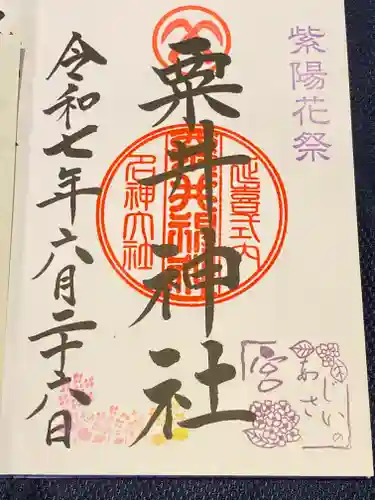 紫陽花祭
粟井神社
令和七年六月二十六日
延喜式内
粟井神社
名神大社
あじさいの
宮